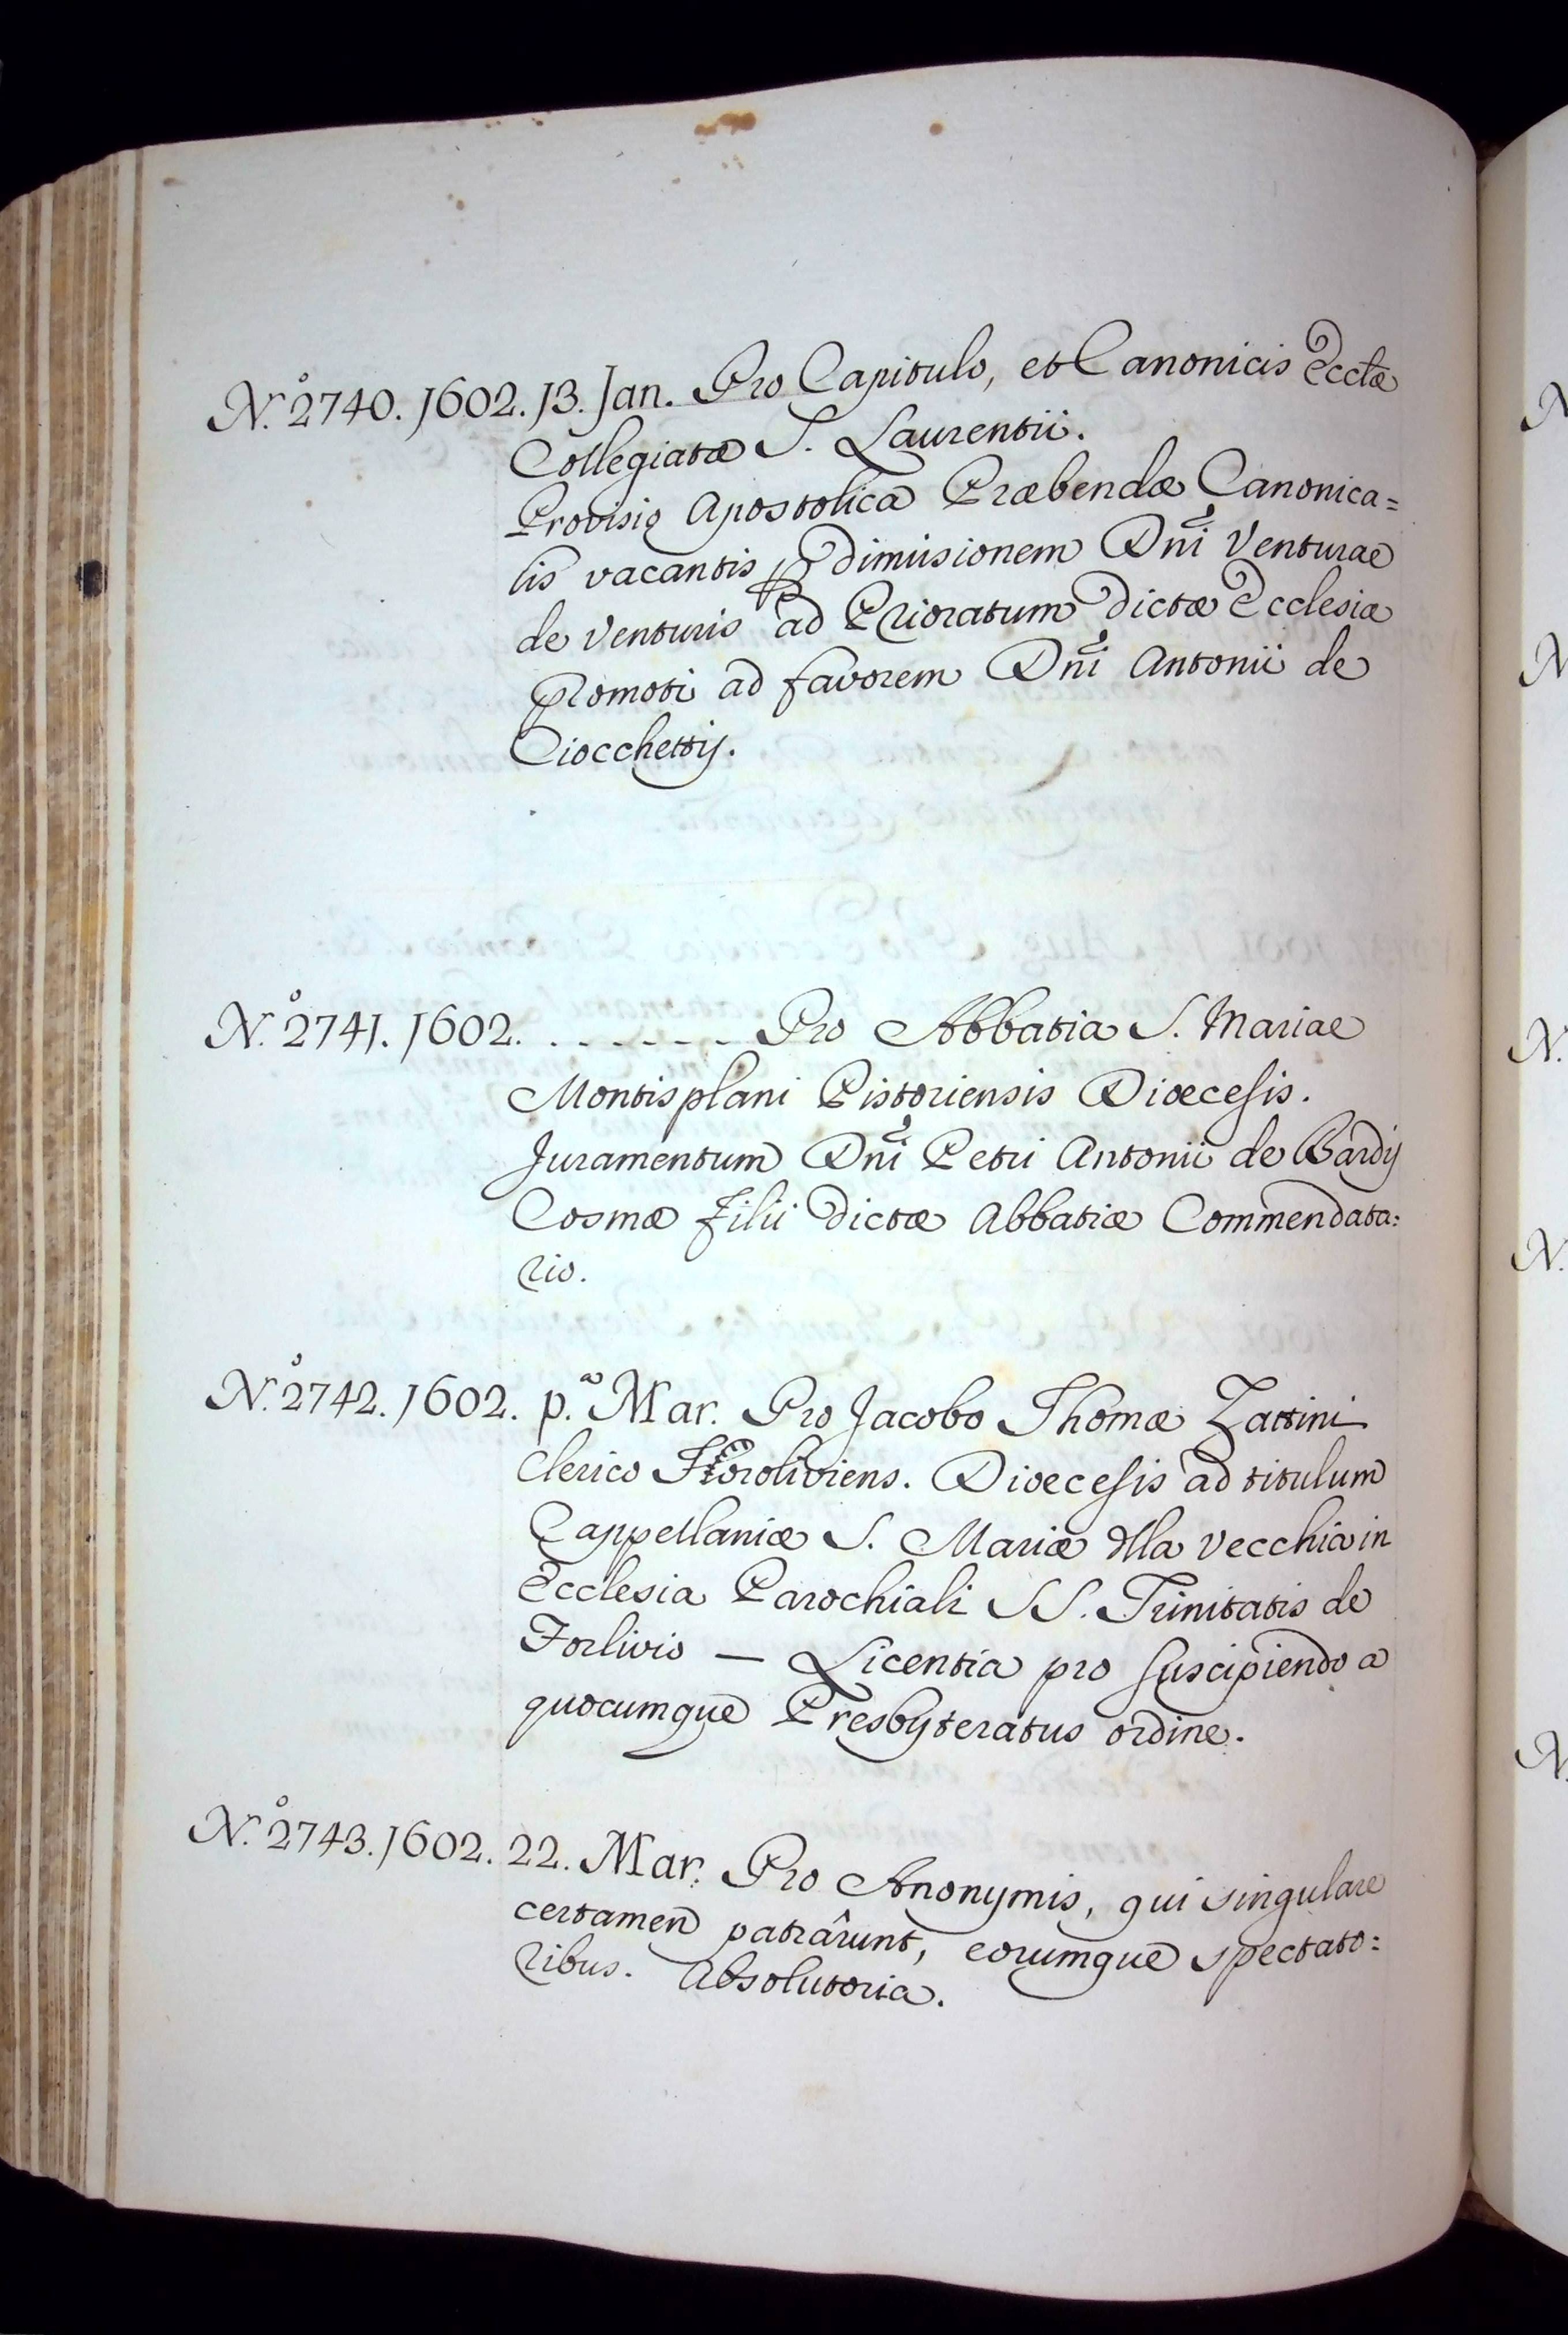 N.° 2740. 1602. 13. Jan. Pro Capitulo, et Canonicis Ecctæ
Collegiatæ S. Laurentii.
Provisio Apostolica Præbendæ Canonica=
lis vacantis dimisionem Dñi Venturae
de Venturis ad Prioratum dictæ Ecclesiæ
promoti ad favorem Dñi Antonii de
Ciocchettij.
N.° 2741. 1602. . . . . . . . Pro Abbatia S. Mariae
Montisplani Pistoriensis Dioecesis.
Juramentum Dñi Petri Antonii de Bardij
Cosmæ filii dictæ Abbatiæ Commendata:
rio.
N.° 2742. 1602. p.ª Mar. Pro Jacobo Thomæ Zattini
Clerico Foroliviens. Dioecesis ad titulum
Cappellaniæ S. Mariæ dlla Vecchia in
Ecclesia Parochiali SS. Trinitatis de
Forlivio — Licentia pro suscipiendo a
quocumque Presbyteratus ordine.
N.° 2743. 1602. 22. Mar. Pro Anonymis, qui singulare
certamen patrârunt, eorumque spectato:
ribus. Absolutoria.
N
N
N.
N.
N.